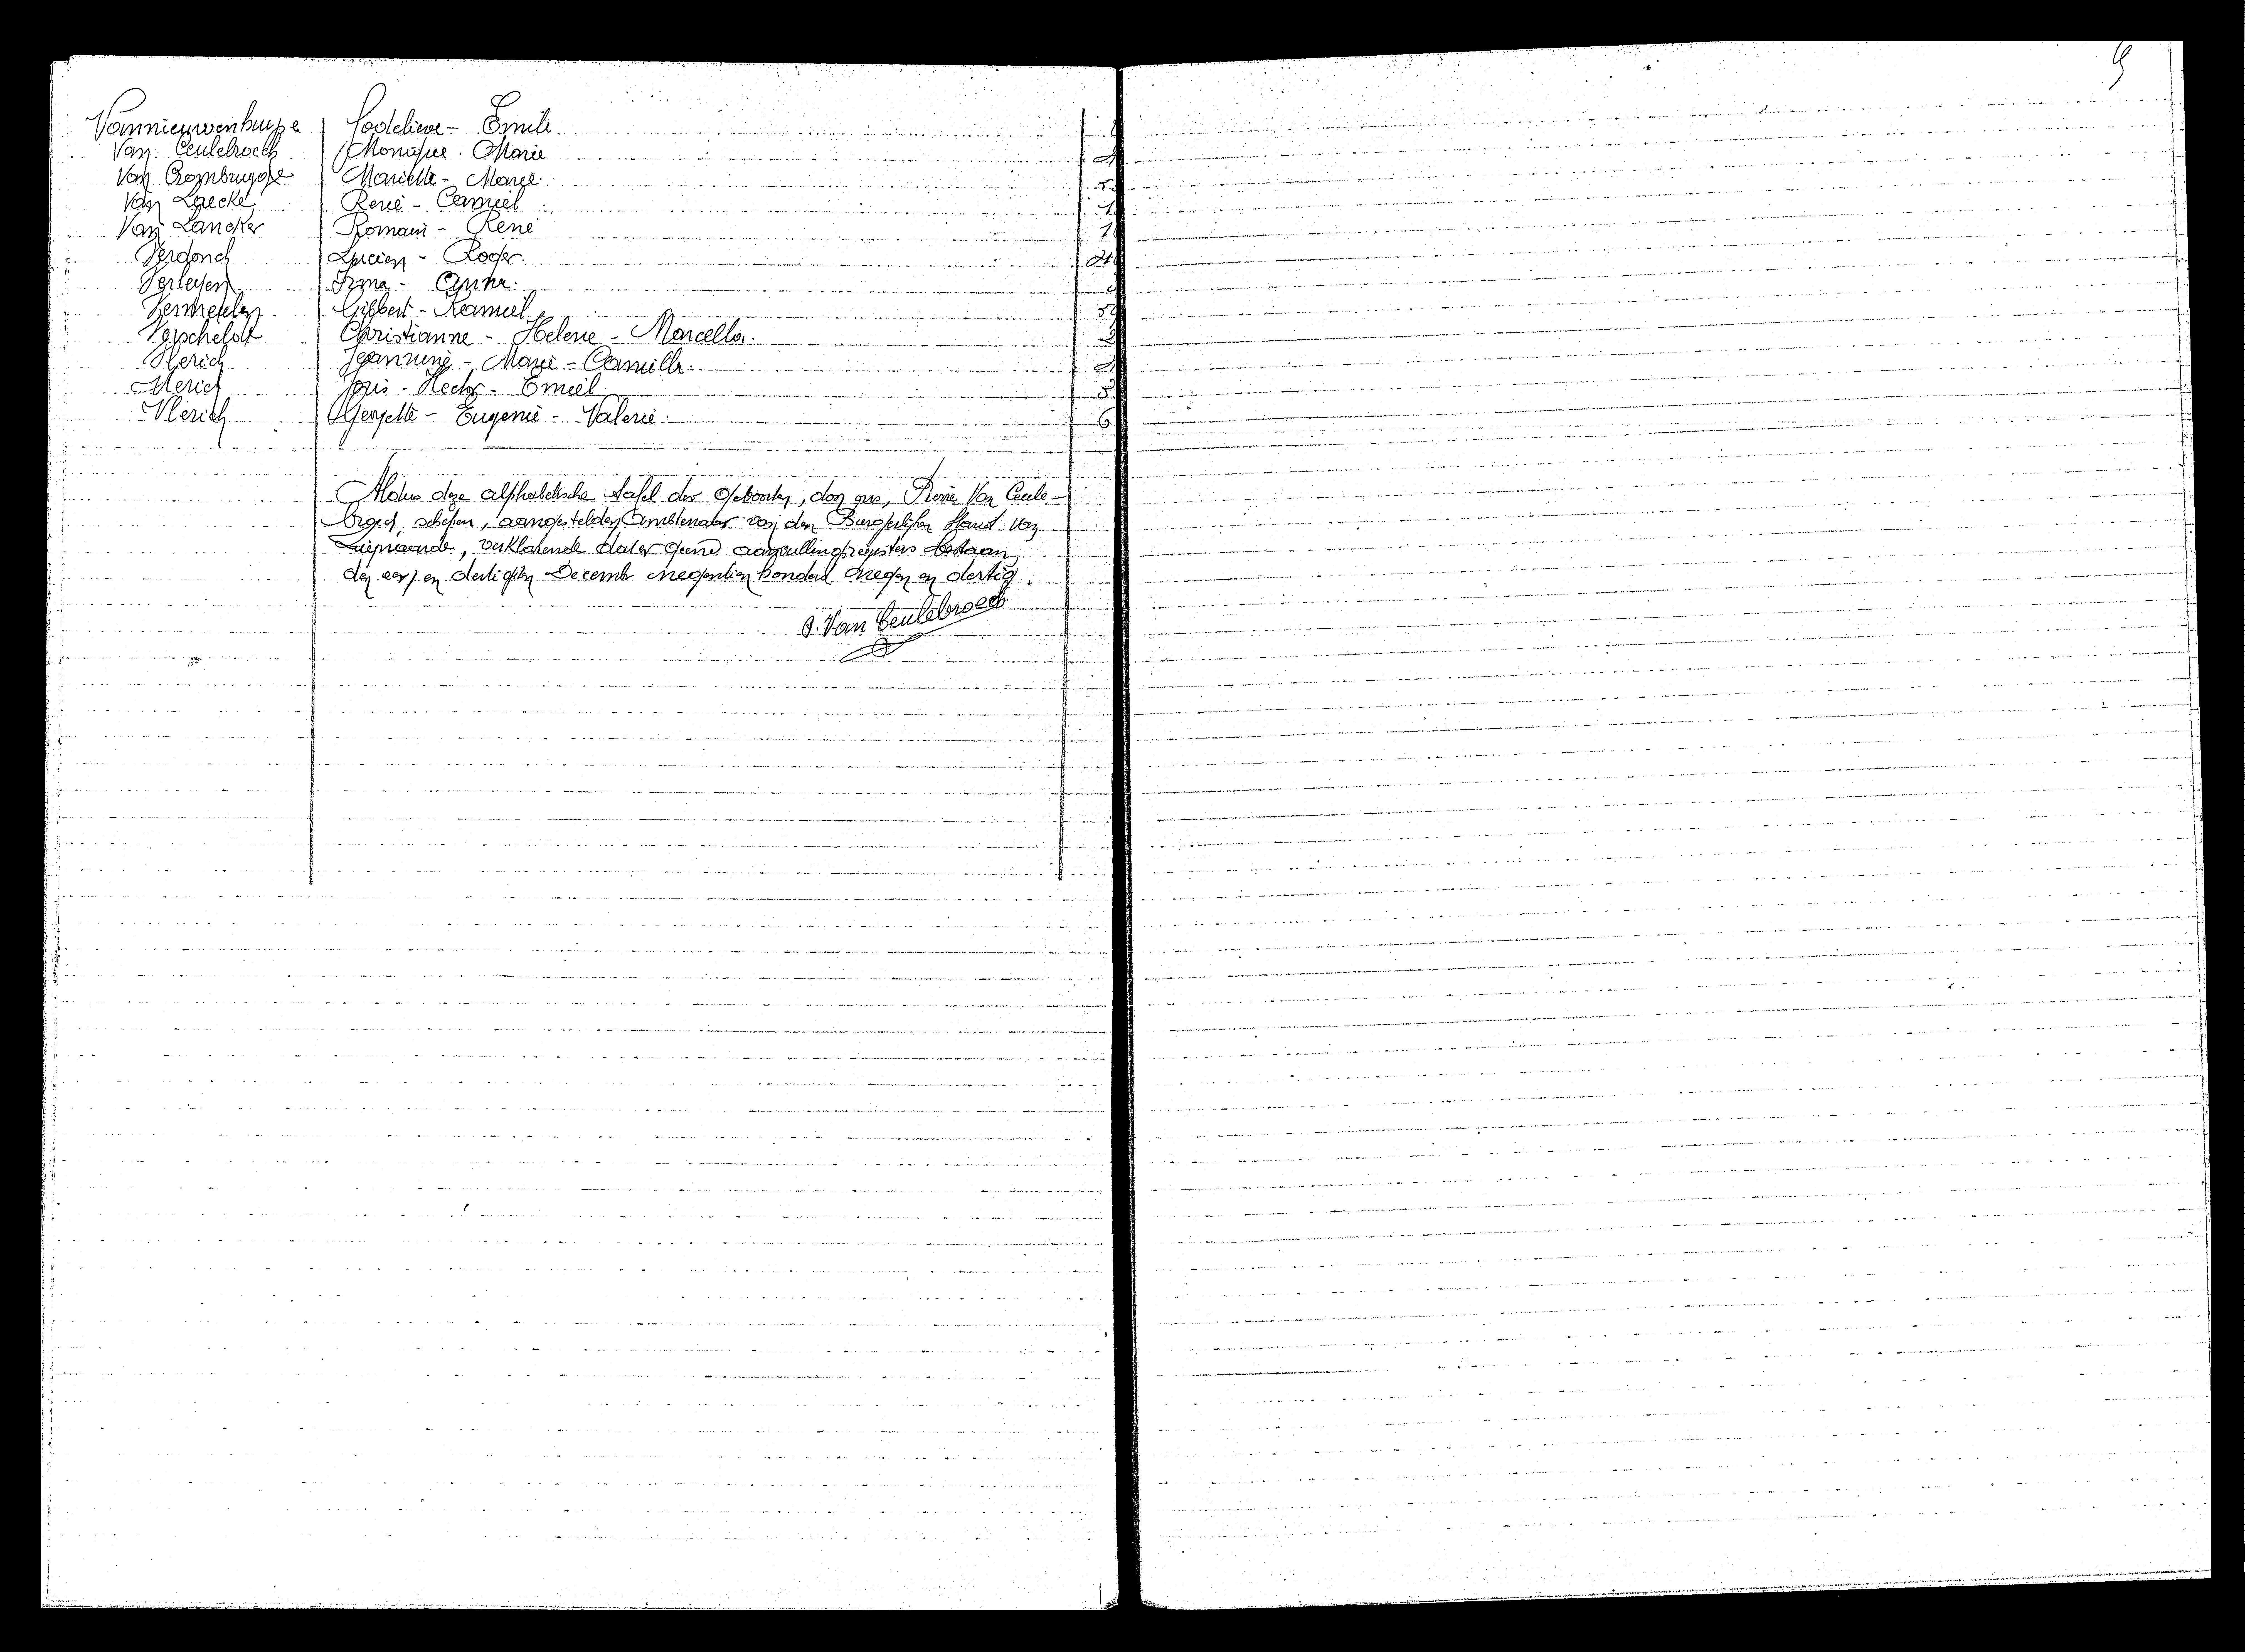 Vannieuwenhuyse Godelieve - Emilie
Van Ceulebroeck Monique - Marie
Van Crombrugge Marielle - Marie
Van Laecke René - Camiel
Van Lancker Romain - René 1
Verdonck Lucien - Roger
Verleyen Irma - Anna
Vermeulen Gilbert - Kamiel
Christianne - Helene - Marcella
Vlerick Jeannine - Marie - Camilla
Vlerick Joris - Hector - Emiel
Vlerick Georgette - Eugenie - Valerie 6
Aldus deze alphabetische tafel der Geboorten, door ons, Pierre Van Ceule-
broeck, schepen, aangestelden Ambtenaar van den Burgerlijken Stand van
verklarende dat er geene aanvullingsregisters bestaan,
den een en dertigsten December negentien honderd negen en dertig.
P. Van Ceulebroeck